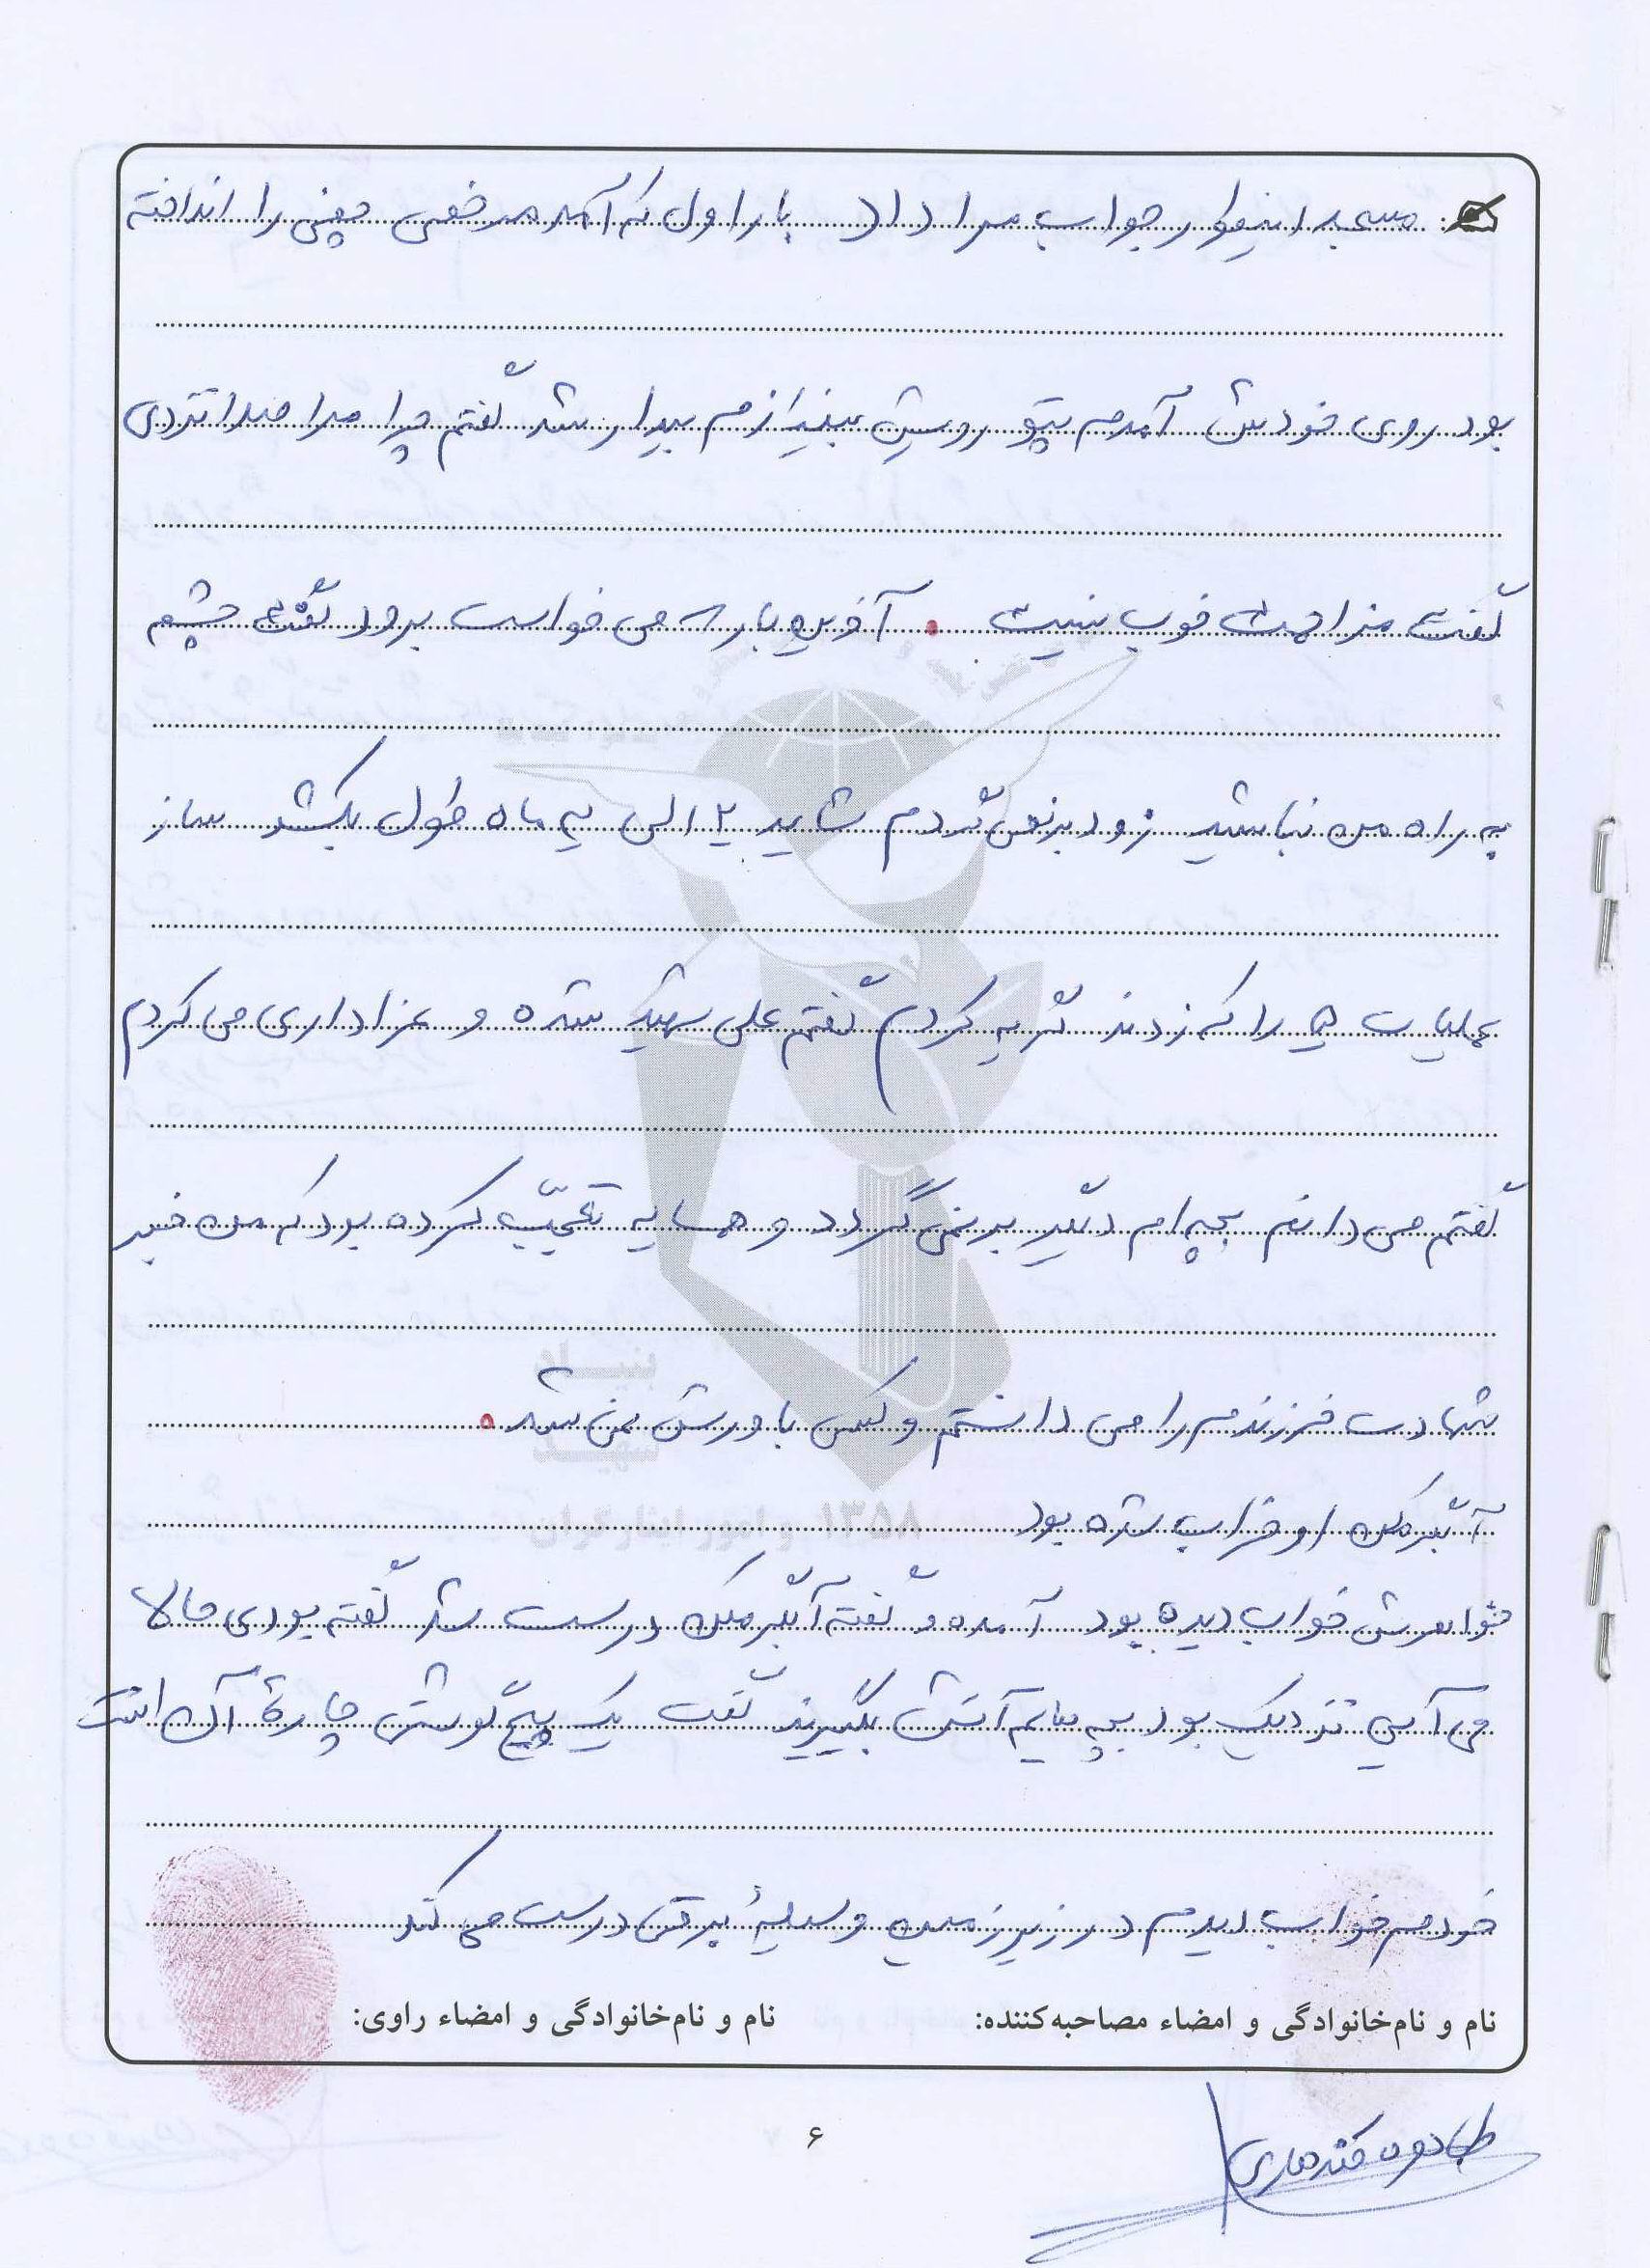 مسجد اینطور جواب مرا داد بار اول که آمد مرخصی چفی را انداخته
بود روی خودش آمدم پتو رویش بیندازم بیدار شد گفتم چرا مرا صدا نزدی
گفت مزاحمت خوب نیست . آخرین بار که می خواست برود گفت چشم
به راه من نباشید زود برنمی گردم شاید ۲ الی ۳ ماه طول بکشد ساز
عملیات ۵ را که زدند گریه کردم گفتم علی شهید شده و عزاداری می کردم
گفتم می دانم بچه ام دیگر برنمی گردد و همسایه تعجّب کرده بود که من خبر
شهادت فرزندم را می دانستم و کسی باورش نمی شد .
آبگرمکن او خراب شده بود
خواهرش خواب دیده بود آمده و گفته آبگرمکن درست شد گفته بودی حالا
می آیی نزدیک بود بچه هایم آتش بگیرند گفت یک پیچ گوشتی چارهٔ آن است
خودم خواب دیدم در زیرزمین وسیلهٔ برقی درست می کند
نام و نام‌خانوادگی و امضاء مصاحبه‌کننده: نام و نام‌خانوادگی و امضاء راوی:
طاهره قندهاری
۶
بنیاد
شهید
و امور ایثارگران ۱۳۵۸